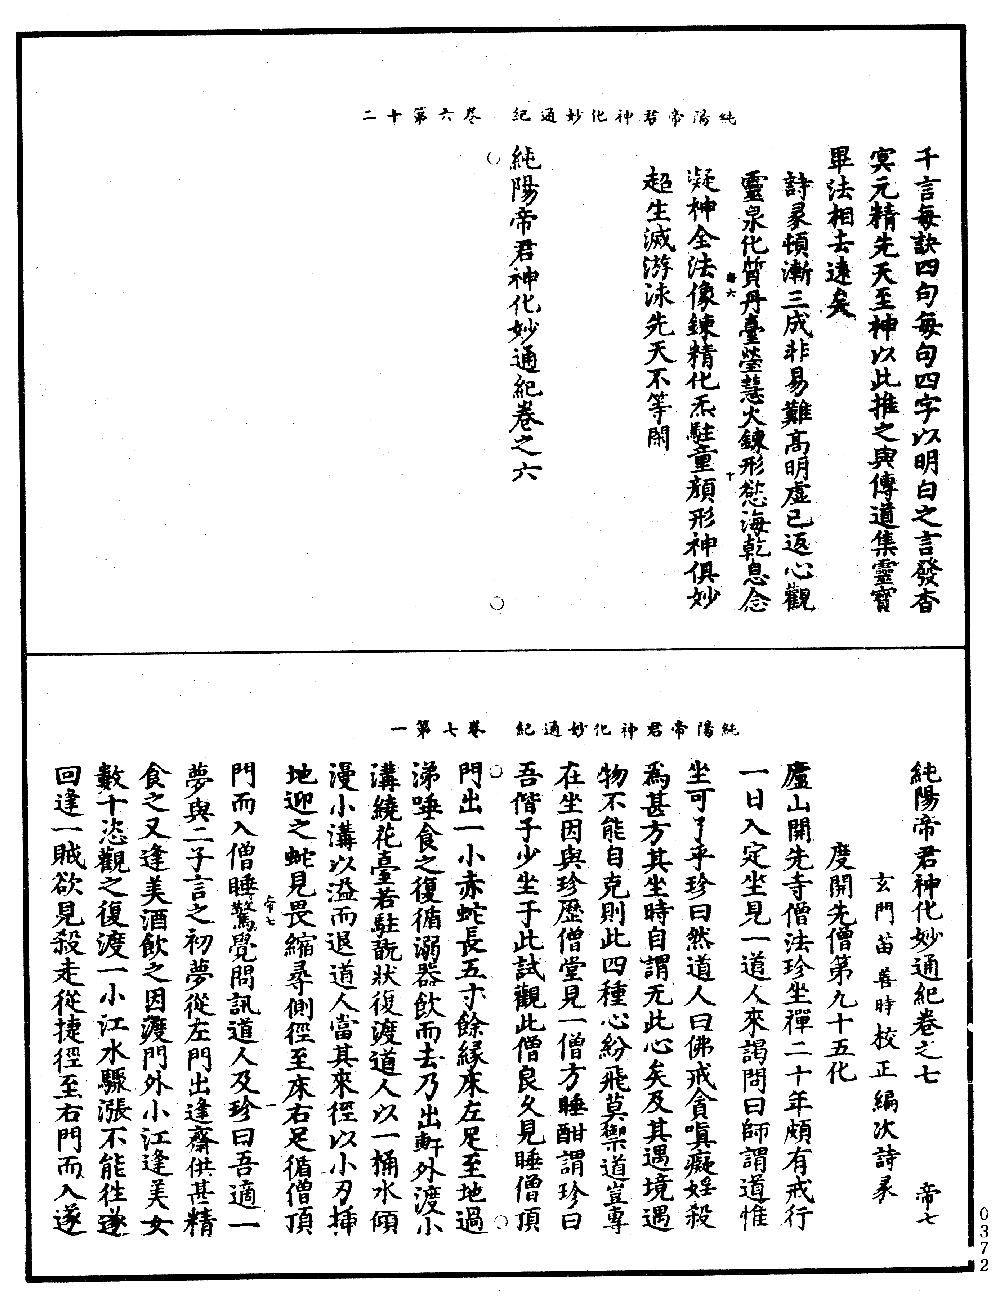 純陽帝君神化妙通紀　卷六第十二
千言每訣四句每句四字以明白之言發杳
冥元精先天至神以此推之與傳道集靈寶
畢法相去遠矣
詩彖頓漸三成非易難高明虛已返心觀
靈泉化質丹臺瑩慧火鍊形慾海乾息念
凝神全法像鍊精化炁駐童顏形神俱妙
超生滅游泳先天不等閑
純陽帝君神化妙通紀卷之六
純陽帝君神化妙通紀　卷七第一
純陽帝君神化妙通紀卷之七　帝七
玄門苗善時校正編次詩彖
度開先僧第九十五化
廬山開先寺僧法珍坐禪二十年頗有戒行
一日入定坐見一道人來謁問曰師謂道惟
坐可了乎珍曰然道人曰佛戒貪嗔癡婬殺
為甚方其坐時自謂无此心矣及其遇境遇
物不能自克則此四種心紛飛莫禦道豈專
在坐因與珍歷僧堂見一僧方睡酣謂珍曰
吾偕子少坐于此試觀此僧良久見睡僧頂
門出一小赤蛇長五寸餘緣床左足至地過
涕唾食之復循溺器飲而去乃出軒外渡小
溝繞花臺若駐翫狀復渡道人以一桶水傾
漫小溝以溢而退道人當其來徑以小刃插
地迎之蛇見畏縮尋側徑至床右足循僧頂
門而入僧睡驚覺問訊道人及珍曰吾適一
夢與二子言之初夢從左門出逢齋供甚精
食之又逢美酒飲之因渡門外小江逢美女
數十恣觀之復渡一小江水驟漲不能往遂
回逢一賊欲見殺走從捷徑至右門而入遂
帝七
一
0372